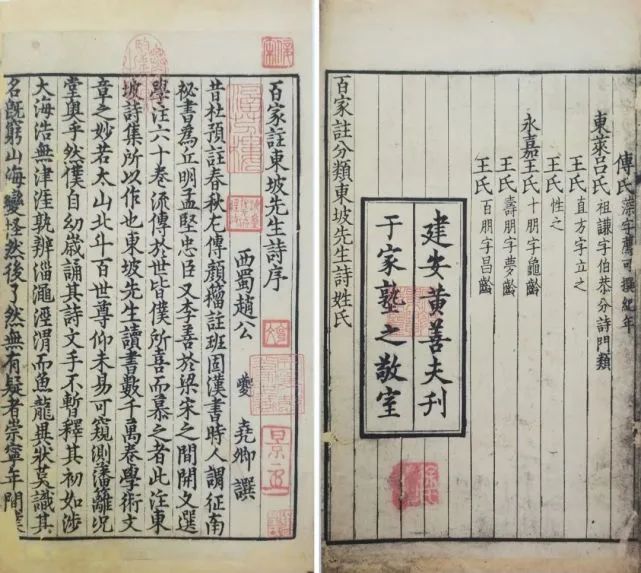 百家註東坡先生詩序
西蜀趙公 夔 堯卿 撰
昔杜預註春秋左傳顏籀註班固漢書時人謂征南
祕書爲丘明孟堅忠臣又李善於梁宋之間開文選
學注六十卷流傳於世皆僕所喜而慕之者此注東
坡詩集所以作也東坡先生讀書數千萬卷學術文
章之妙若太山北斗百世尊仰未易可窺測藩籬況
堂奧乎然僕自幼歲誦其詩文手不暫釋其初如涉
大海浩無津涯孰辨淄澠涇渭而魚龍異狀莫識其
名既窮山海變怪然後了然無有疑者崇寧年間
傅氏 藻字薦可撰紀年
東萊呂氏 祖謙字伯恭分詩門類
王氏 直方字立之
王氏 性之
永嘉王氏 十朋字龜齡
王氏 壽朋字夢齡
王氏 百朋字昌齡
建安黃善夫刊
于家塾之敬室
百家註分類東坡先生詩姓氏